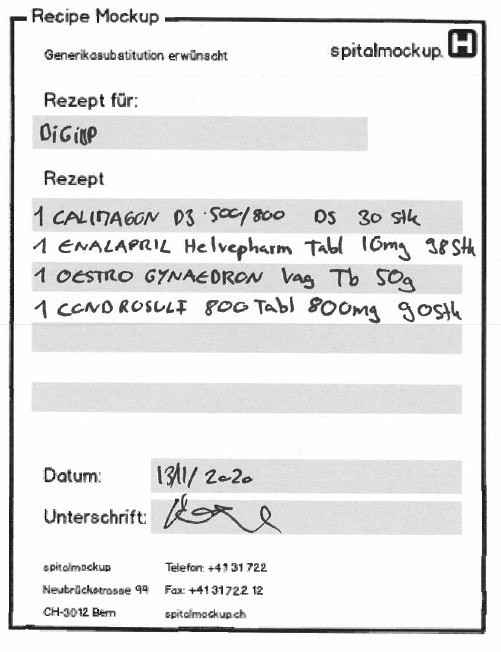 Recipe Mockup
Generikasubstitution erwünscht
spitalmockup. H
Rezept für:
DiGiiBP
Rezept
1 CALIMAGON D3 500/800 DS 30 Stk
1 ENALAPRIL Helvepharm Tabl 10mg 98 Stk
1 OESTRO GYNAEDRON Vag Tb 50g
1 CONDROSULF 800 Tabl 800mg 90 Stk
Datum: 13/11/2020
Unterschrift:
spitalmockup Telefon: +41 31 722
Neubrückstrasse 99 Fax: +41 31 722 12
CH-3012 Bern spitalmockup.ch